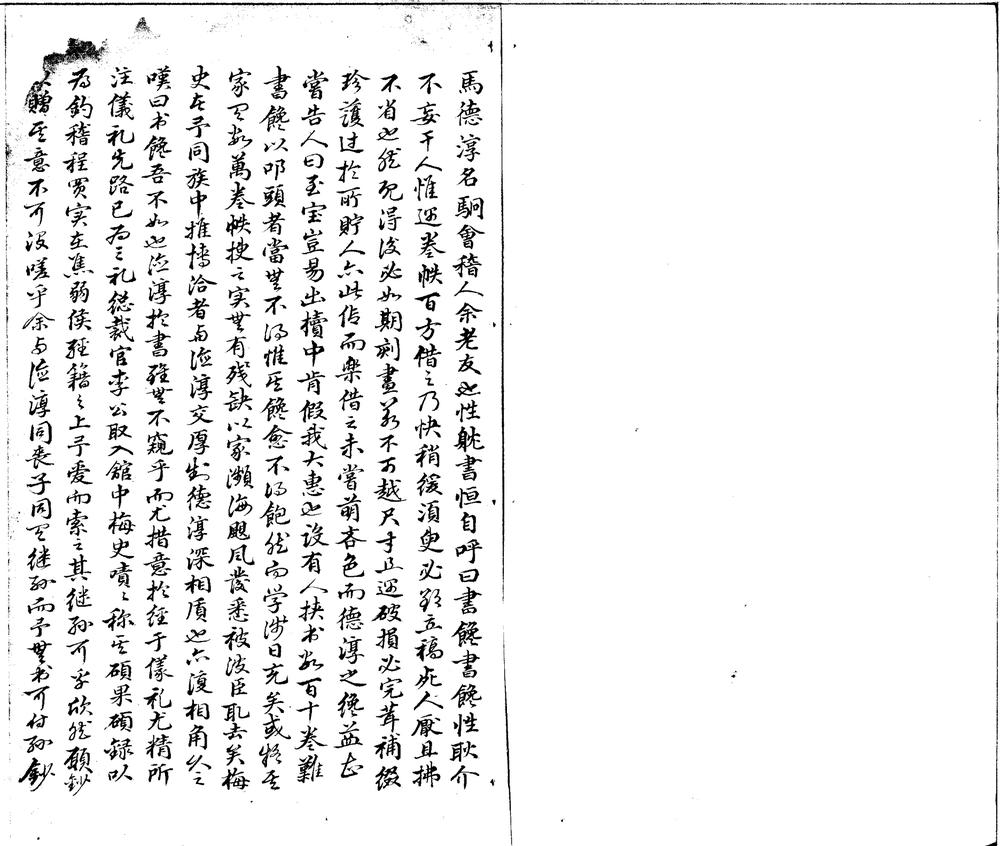 馬德淳名駉會稽人余老友也性躭書恒自呼曰書饞書饞性耿介
不妄干人惟遇卷帙百方借之乃快稍緩須臾必欲立稿死人厭且拂
不省也然既得後必如期刻畫若不可越尺寸且遇破損必完葺補綴
珍護过於所貯人亦此信而樂借之未嘗萌吝色而德淳之饞益甚
嘗告人曰至宝豈易出櫝中肯假我大惠也设有人挟书数百十卷難
書饞以叩頭者當無不得惟其饞愈不得飽然而学涉日充矣或猜其
家有数萬卷帙搜之实無有残缺以家瀕海颶风發悉被波臣取去矣梅
史在予同族中推博洽者与德淳交厚出德淳深相質也亦復相角久之
嘆曰书饞吾不如也德淳於書雖無不窺乎而尤措意於经于儀礼尤精所
注儀礼先路已为三礼總裁官李公取入舘中梅史嘖〻称其碩果碩録以
为鈞稽程贾实在焦弱侯經籍之上予爱而索之其继孙可孚欣然願鈔
以贈其意不可沒嗟乎余与德淳同喪子同有继孙而予無书可付孙鈔